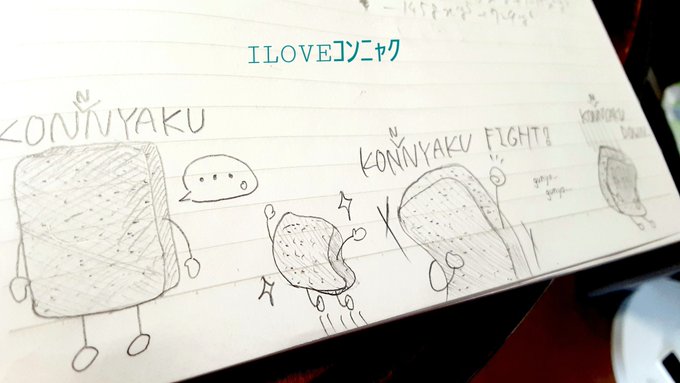 ILOVEコンニャク
KONNYAKU
....。
KONNYAKU FIGHT!
gunya..
gunya..
KONNYAKU
DOWN